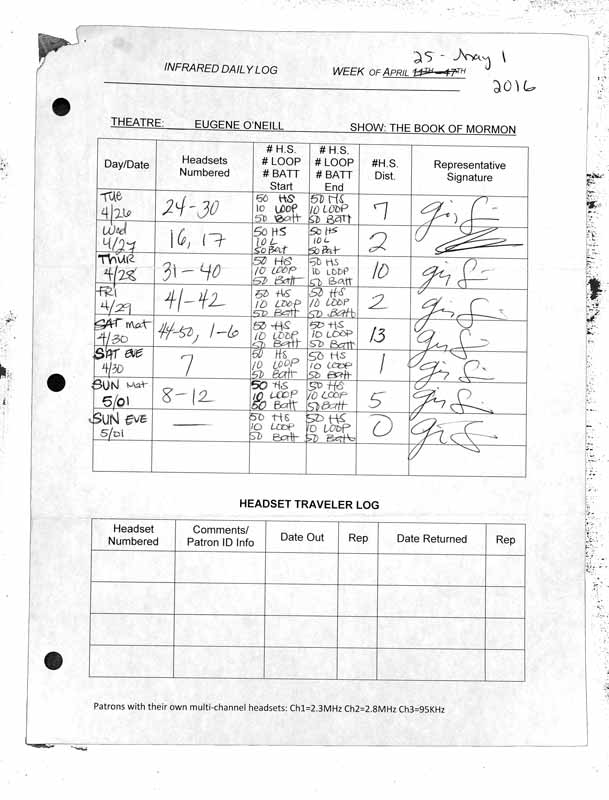 25 - May 1
INFRARED DAILY LOG WEEK OF APRIL 11TH - 17TH
2016
THEATRE: EUGENE O'NEILL SHOW: THE BOOK OF MORMON
Day/Date Headsets Numbered # H.S. # LOOP # BATT Start # H.S. # LOOP # BATT End #H.S. Dist. Representative Signature
Tue 4/26 24-30 50 HS 10 LOOP 50 Batt 50 HS 10 LOOP 50 BATT 7
Wed 4/27 16, 17 50 HS 10 L 50 Bat 50 HS 10 L 50 Bat 2
Thur 4/28 31-40 50 HS 10 LOOP 50 Batt 50 HS 10 LOOP 50 Batt 10
FRI 4/29 41-42 50 HS 10 LOOP 50 Batt 50 HS 10 LOOP 50 Batt 2
SAT mat 4/30 44-50, 1-6 50 HS 10 LOOP 50 Batt 50 HS 10 LOOP 50 Batt 13
SAT EVE 4/30 7 50 HS 10 LOOP 50 Batt 50 HS 10 LOOP 50 Batt 1
SUN Mat 5/01 8-12 50 HS 10 LOOP 50 Batt 50 HS 10 LOOP 50 Batt 5
SUN EVE 5/01 — 50 HS 10 LOOP 50 Batt 50 HS 10 LOOP 50 Batt 0
HEADSET TRAVELER LOG
Headset Numbered Comments/ Patron ID Info Date Out Rep Date Returned Rep
Patrons with their own multi-channel headsets: Ch1=2.3MHz Ch2=2.8MHz Ch3=95KHz